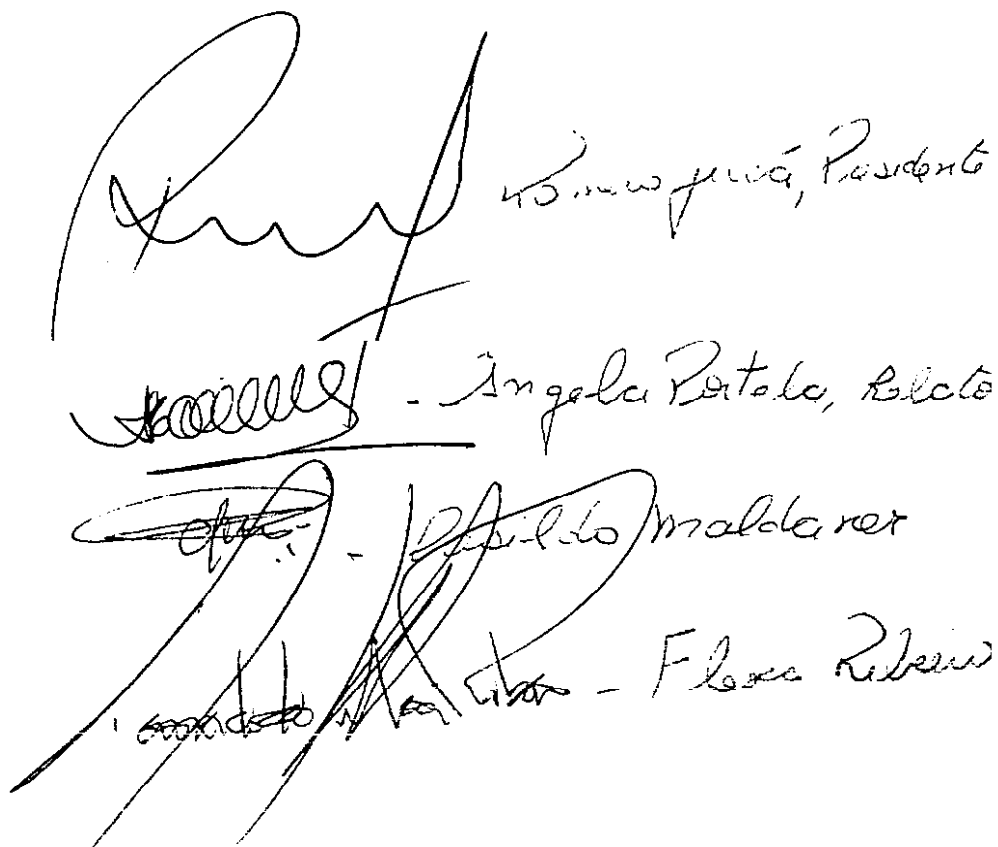 Romero Jucá, Presidente
- Ângela Portela, Relato
- Casildo Maldaner
- Flexa Ribeiro